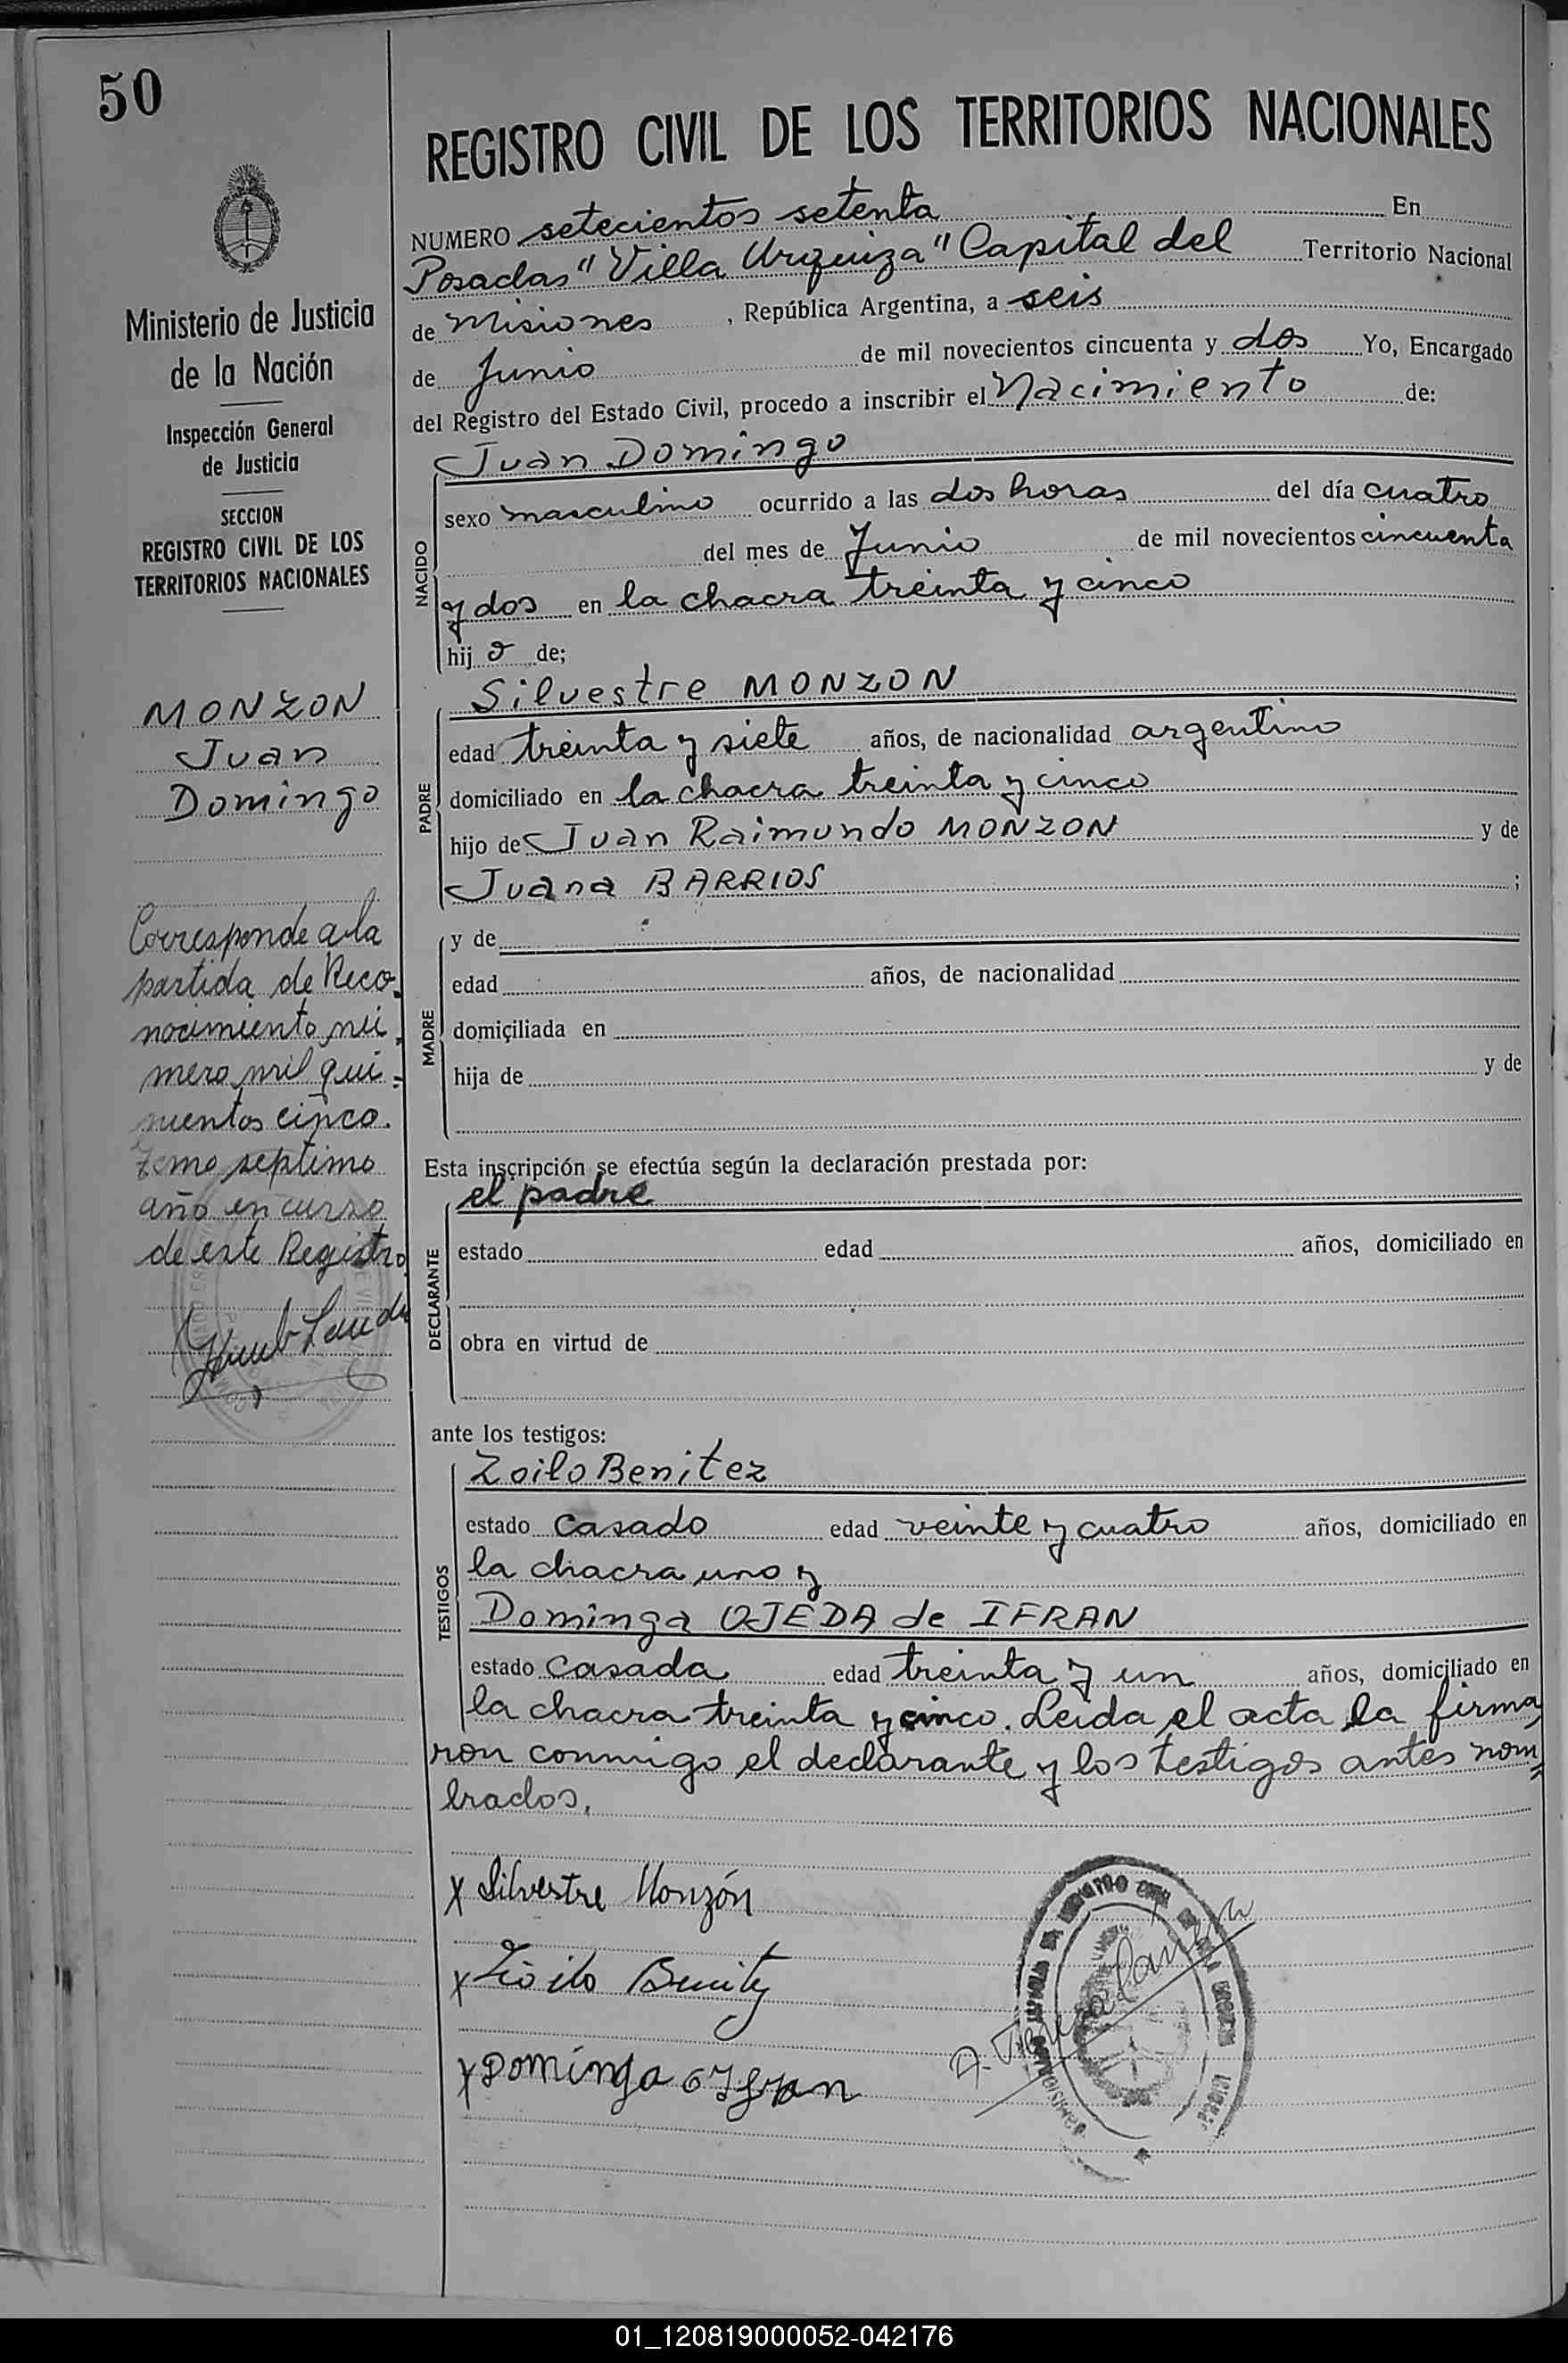 50
REGISTRO CIVIL DE LOS TERRITORIOS NACIONALES
Ministerio de Justicia
de la Nación
Inspección General
de Justicia
SECCION
REGISTRO CIVIL DE LOS
TERRITORIOS NACIONALES
MONZON
Juan
Domingo
Corresponde a la
partida de Reco-
nocimiento nú-
mero mil qui-
nientos cinco.
tomo septimo
año en curso
de este Registro
NUMERO setecientos setenta En
Posadas "Villa Urquiza" Capital del Territorio Nacional
de Misiones, República Argentina, a seis
de Junio de mil novecientos cincuenta y dos Yo, Encargado
del Registro del Estado Civil, procedo a inscribir el Nacimiento de:
NACIDO
Juan Domingo
sexo masculino ocurrido a las dos horas del día cuatro
del mes de Junio de mil novecientos cincuenta
y dos en la chacra treinta y cinco
hijo de;
PADRE
Silvestre MONZON
edad treinta y siete años, de nacionalidad argentino
domiciliado en la chacra treinta y cinco
hijo de Juan Raimundo MONZON y de
Juana BARRIOS ;
MADRE
y de
edad años, de nacionalidad
domiciliada en
hija de y de
Esta inscripción se efectúa según la declaración prestada por:
DECLARANTE
el padre
estado edad años, domiciliado en
obra en virtud de
ante los testigos:
TESTIGOS
Zoilo Benitez
estado casado edad veinte y cuatro años, domiciliado en
la chacra uno y
Dominga OJEDA de IFRAN
estado casada edad treinta y un años, domiciliado en
la chacra treinta y cinco. Leida el acta la firma
ron conmigo el declarante y los testigos antes nom=
brados.
x Silvestre Monzón
x Zoilo Benitez
x Dominga
01_120819000052-042176